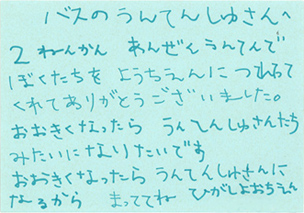 バスのうんてんしゅさんへ
2ねんかん あんぜんうんてんで
ぼくたちを ようちえんに つれて
くれてありがとうございました。
おおきくなったら うんてんしゅさんたち
みたいになりたいです
おおきくなったら うんてんしゅさんに
なるから まっててね ひがしようちえん